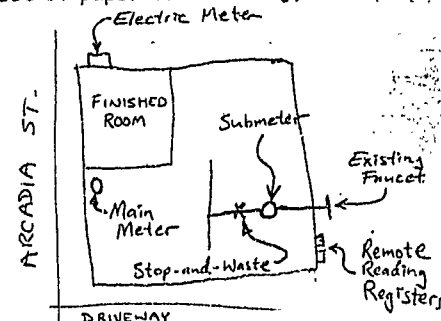 Electric Meter
ARCADIA ST.
FINISHED
ROOM
Submeter
Existing
Faucet
Main
Meter
Stop-and-Waste
Remote
Reading
Registers
DRIVEWAY